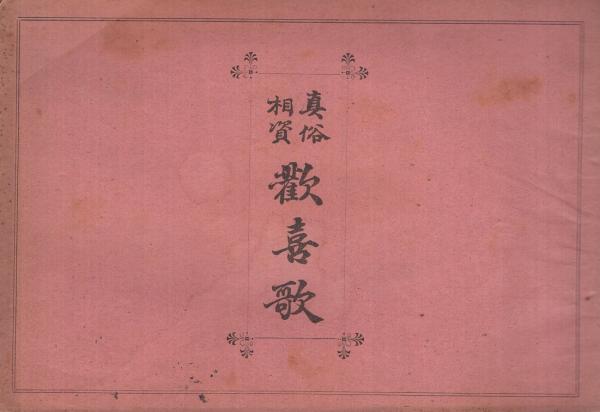 真俗
相資
歡喜歌